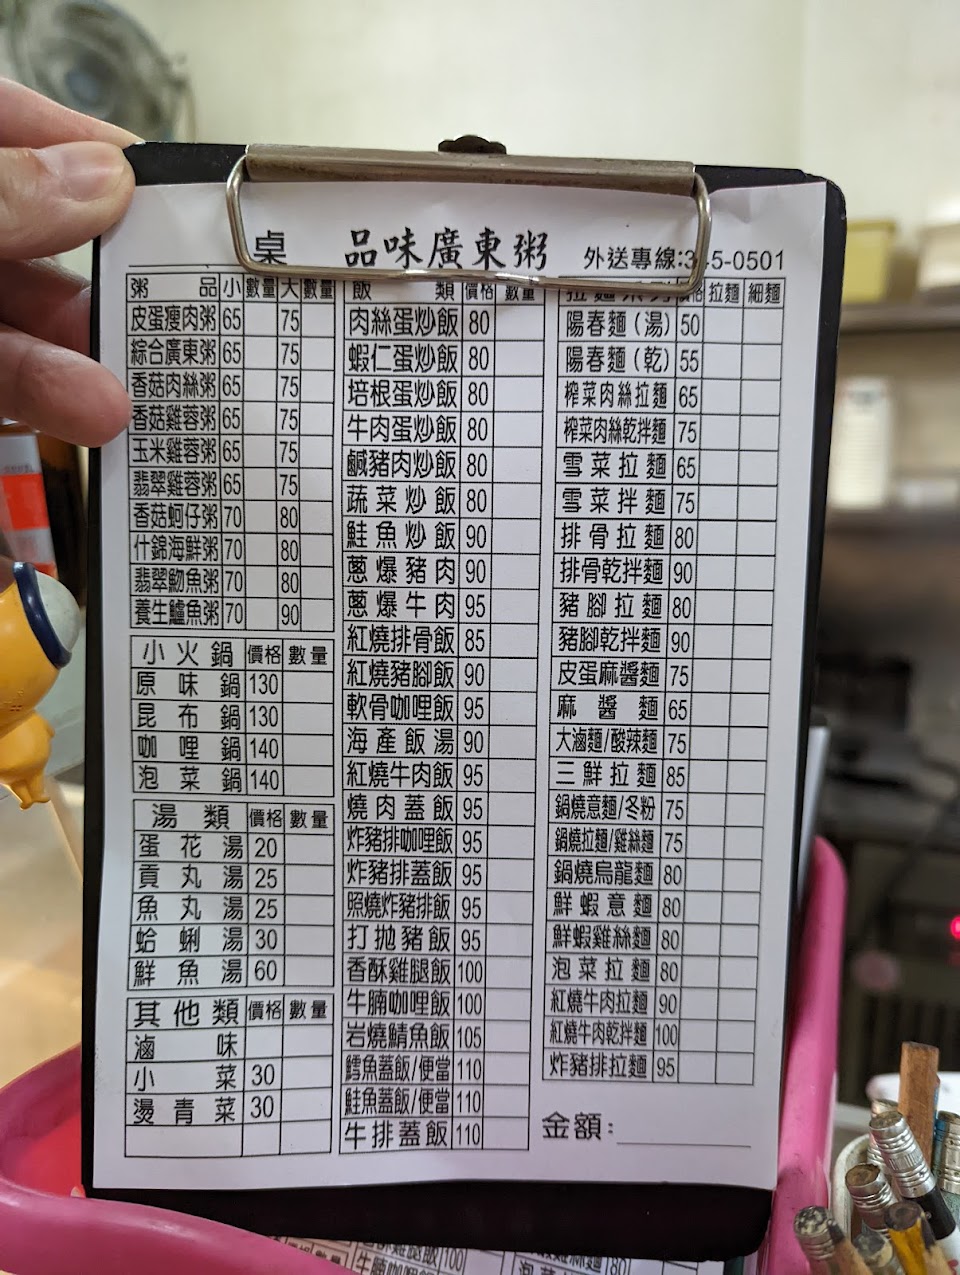 桌 品味廣東粥 外送專線:345-0501
粥品 小 數量 大 數量
皮蛋瘦肉粥 65 75
綜合廣東粥 65 75
香菇肉絲粥 65 75
香菇雞蓉粥 65 75
玉米雞蓉粥 65 75
翡翠雞蓉粥 65 75
香菇蚵仔粥 70 80
什錦海鮮粥 70 80
翡翠魩魚粥 70 80
養生鱸魚粥 70 90
小火鍋 價格 數量
原味鍋 130
昆布鍋 130
咖哩鍋 140
泡菜鍋 140
湯類 價格 數量
蛋花湯 20
貢丸湯 25
魚丸湯 25
蛤蜊湯 30
鮮魚湯 60
其他類 價格 數量
滷味
小菜 30
燙青菜 30
飯類 價格 數量
肉絲蛋炒飯 80
蝦仁蛋炒飯 80
培根蛋炒飯 80
牛肉蛋炒飯 80
鹹豬肉炒飯 80
蔬菜炒飯 80
鮭魚炒飯 90
蔥爆豬肉 90
蔥爆牛肉 95
紅燒排骨飯 85
紅燒豬腳飯 90
軟骨咖哩飯 95
海產飯湯 90
紅燒牛肉飯 95
燒肉蓋飯 95
炸豬排咖哩飯 95
炸豬排蓋飯 95
照燒炸豬排飯 95
打拋豬飯 95
香酥雞腿飯 100
牛腩咖哩飯 100
岩燒鯖魚飯 105
鱈魚蓋飯/便當 110
鮭魚蓋飯/便當 110
牛排蓋飯 110
拉麵系列 價格 拉麵 細麵
陽春麵(湯) 50
陽春麵(乾) 55
榨菜肉絲拉麵 65
榨菜肉絲乾拌麵 75
雪菜拉麵 65
雪菜拌麵 75
排骨拉麵 80
排骨乾拌麵 90
豬腳拉麵 80
豬腳乾拌麵 90
皮蛋麻醬麵 75
麻醬麵 65
大滷麵/酸辣麵 75
三鮮拉麵 85
鍋燒意麵/冬粉 75
鍋燒拉麵/雞絲麵 75
鍋燒烏龍麵 80
鮮蝦意麵 80
鮮蝦雞絲麵 80
泡菜拉麵 80
紅燒牛肉拉麵 90
紅燒牛肉乾拌麵 100
炸豬排拉麵 95
金額: